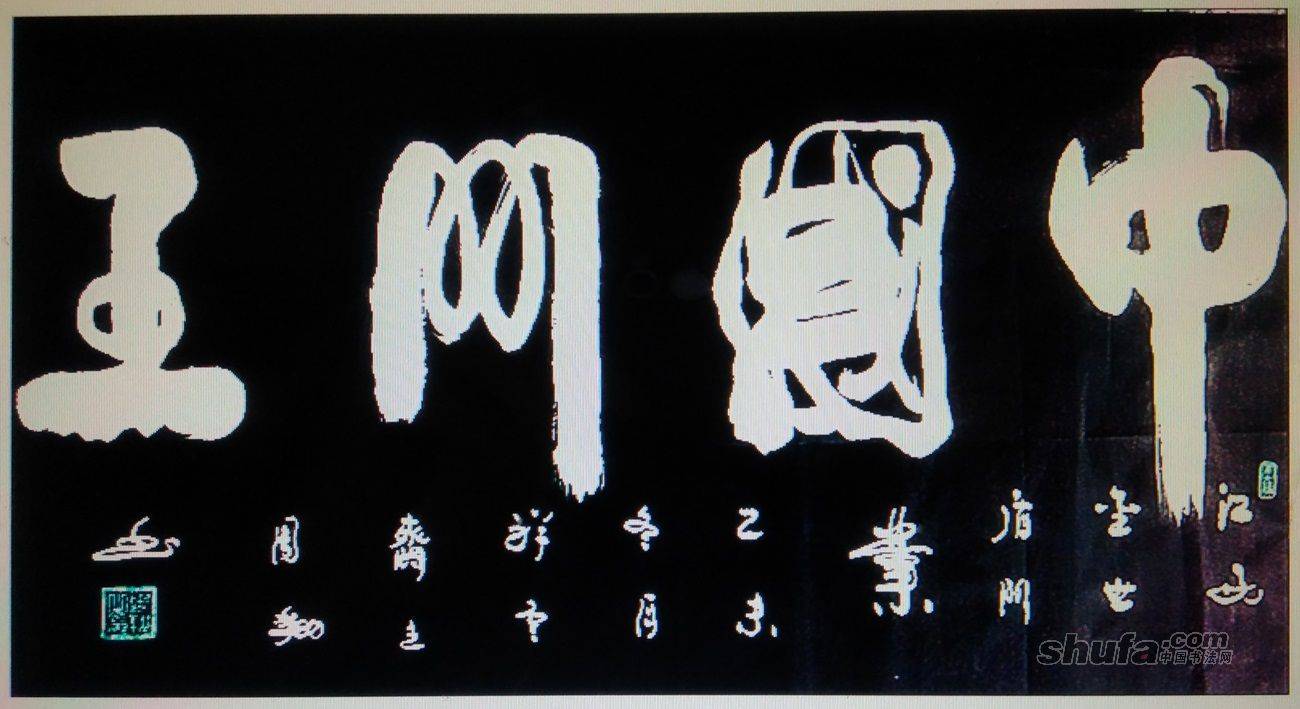 中國門王
江山
金世
盾門
業
乙未
冬月
祥雲
齋主
周
shufa.com
中国书法网